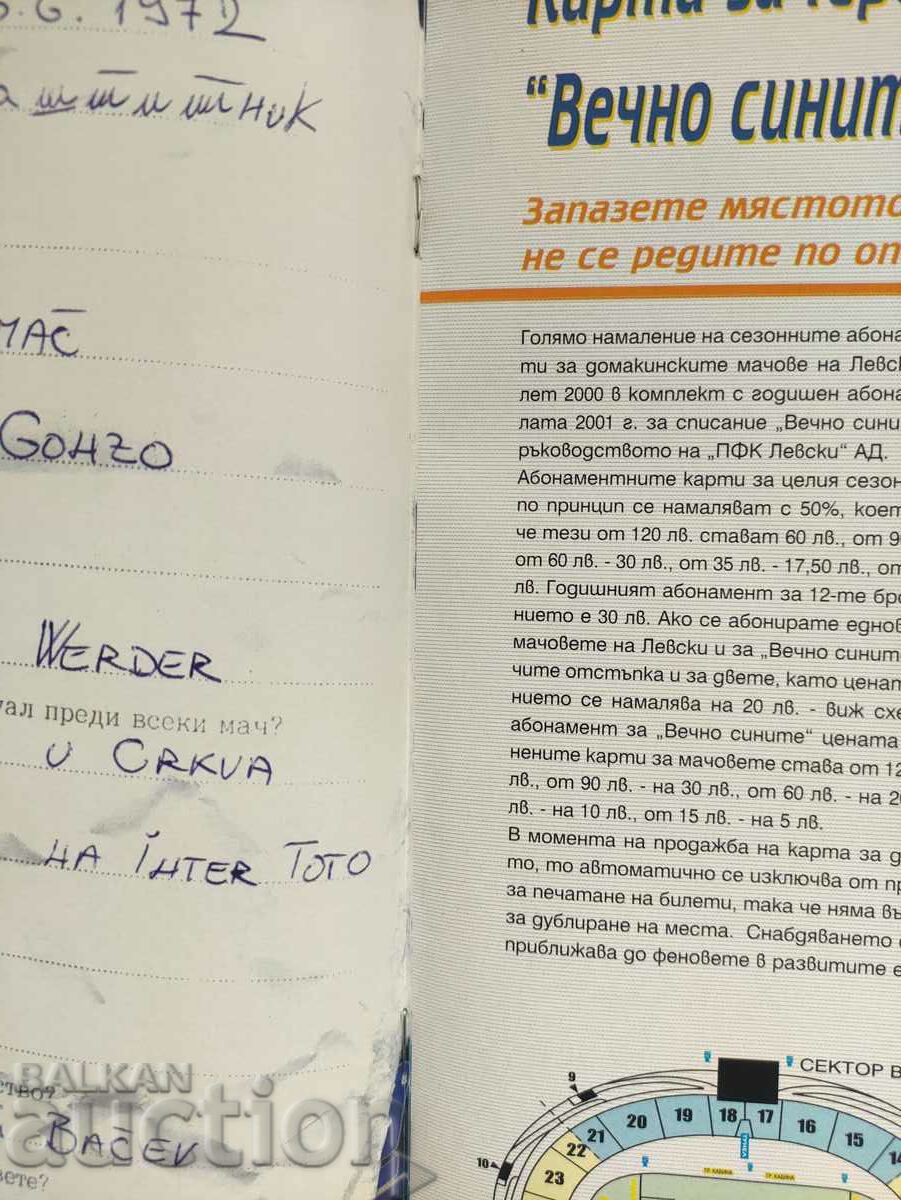 6. 1972
штитник
МАČ
GOHZO
WERDER
уал преди всеки мач?
U CRKVA
НА İНTER TOTO
ство?
BAČEV
вете?
Карта за
"Вечно синит
Запазете мястото
не се редите по оп
Голямо намаление на сезонните абона
ти за домакинските мачове на Левск
лет 2000 в комплект с годишен абона
лата 2001 г. за списание „Вечно сини
ръководството на „ПФК Левски“ АД.
Абонаментните карти за целия сезон
по принцип се намаляват с 50%, коет
че тези от 120 лв. стават 60 лв., от 9
от 60 лв. - 30 лв., от 35 лв. - 17,50 лв., от
лв. Годишният абонамент за 12-те бро
нието е 30 лв. Ако се абонирате еднов
мачовете на Левски и за „Вечно синит
чите отстъпка и за двете, като ценат
нието се намалява на 20 лв. - виж схе
абонамент за „Вечно сините“ цената
нените карти за мачовете става от 12
лв., от 90 лв. - на 30 лв., от 60 лв. - на 20
лв. - на 10 лв., от 15 лв. - на 5 лв.
В момента на продажба на карта за д
то, то автоматично се изключва от пр
за печатане на билети, така че няма въ
за дублиране на места. Снабдяването с
приближава до феновете в развитите е
СЕКТОР В
9
10
23 22 21 20 19 18 17 16 15 14
ТР. КАБИНА
ТР. КАБИНА
BALKAN
auction